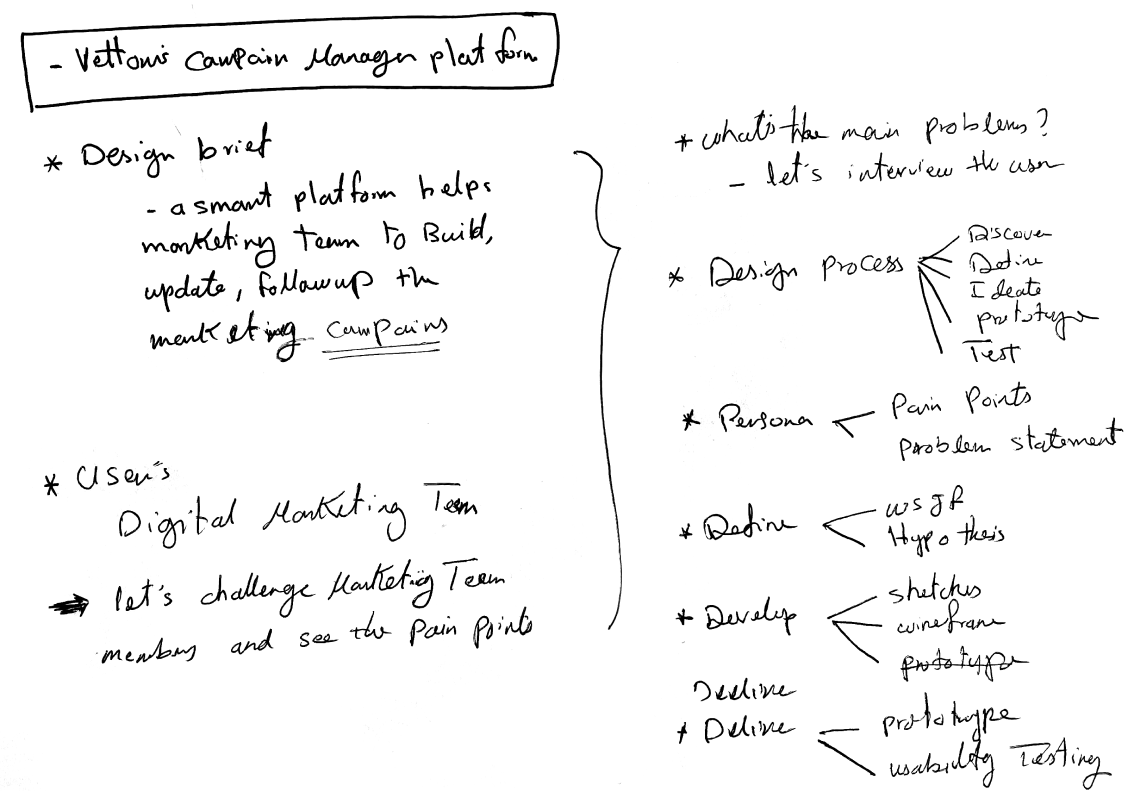 - Vettom's Campain Manager platform
* Design brief
- a smart platform helps
marketing team to Build,
update, followup the
marketing campains
* User's
Digital Marketing Team
→ let's challenge Marketing Team
members and see the Pain Points
* what's the main problems?
- let's interview the user
* Design Process
Discover
Define
Ideate
prototype
Test
* Persona
Pain Points
Problem statement
* Define
WSJF
Hypothesis
* Develop
sketches
wireframe
prototype
* 
prototype
usability Testing